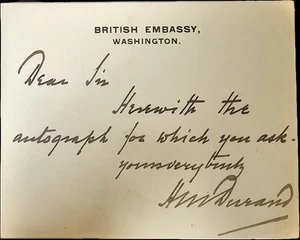 BRITISH EMBASSY,
WASHINGTON.
Dear Sir
Herewith the
autograph for which you ask -
yours very truly
HMDurand